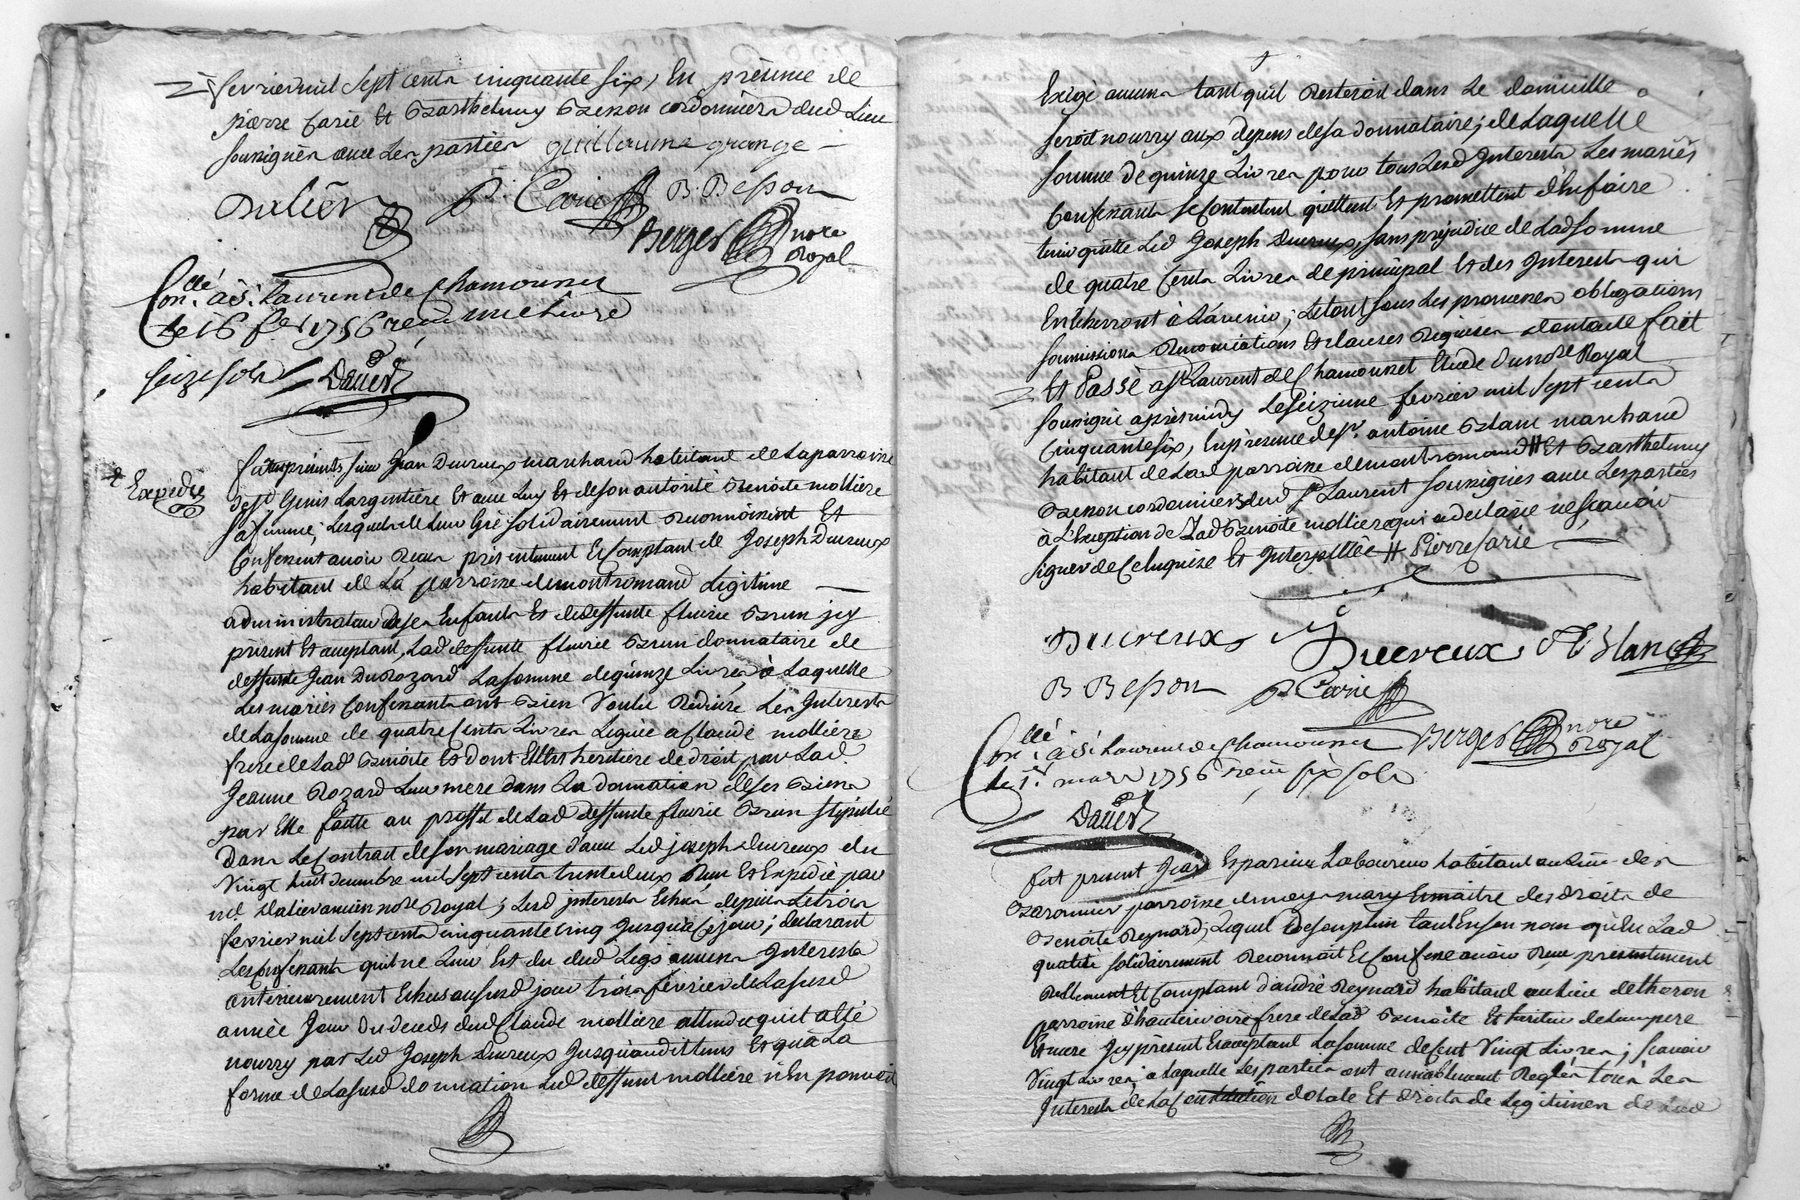 fevrier mil sept cents cinquante six, En présence de
pierre Carié Et Barthelemy Besson cordonniers dud Lieu
soussignés avec Les parties guillaume grange
Dalier P. Carié B. Besson
Berger nore
Royal
Con.llé à St. Laurent de Chamousset
Le 16 fer 1756 reçu une livre
seize sols Daüer
Expediée
furent présents sieur Jean Ducreux marchand habitant de La parroisse
de St Genis Largentière Et avec Luy Et de son autorité Benoite mollière
sa femme, Lesquels de Leur Gré solidairement Reconnoissent Et
Confessent avoir Receu présentement Et Comptant de Joseph Ducreux
habitant de La parroisse de montromand Legitime
administrateur de ses Enfants Et de deffunte fleurie Brun icy
présent Et acceptant, Lad deffunte fleurie Brun donnataire de
deffunte Jean Du Rozard La somme de quinze Livres, à Laquelle
Les mariés Confessants ont Bien Voulu Réduire Les Interests
de La somme de quatre Cents Livres Léguée a Claude mollière
frere de Lad Benoite Et dont Elle Est heritière de droit, par Lad.
Jeanne Rozard Leur mere dans La donnation de ses Biens
par Elle faitte au proffit de Lad deffunte fleurie Brun stipulée
Dans Le Contrat de son mariage d'avec Led joseph Ducreux du
Vingt huit décembre mil sept cents trente deux Receu Et Expédié par
me. Dalier ancien nore Royal; Lesd interests Echus depuis Le trois
fevrier mil sept cents cinquante cinq jusqu'à Ce jour; declarant
Les Confessants qu'il ne Leur Est du dud Legs aucuns Interests
anterieurement Echus aususd jour trois février de La susd
année Jour du decès dud Claude mollière attendu qu'il a été
nourry par Led Joseph Ducreux Jusqu'audit tems Et qu'à La
forme de La susd donnation Led deffunt mollière n'En pouvoit
Exiger aucuns tant qu'il Resteroit dans Le domicille
seroit nourry aux depens de sa donnataire; de Laquelle
somme de quinze Livres pour tous Lesd Interests Les mariés
Confessants se Contentent quittent Et promettent d'En faire
tenir quitte Led Joseph Ducreux, sans préjudice de Lad somme
de quatre Cents Livres de principal Et des Interests qui
En Cherront à L'avenir; Le tout sous Les promesses obligations
soumissions Renonciations Et clauses Requises dont acte fait
Et Passé a St Laurent de Chamousset Etude du nore Royal
soussigné après midy Le seizieme fevrier mil sept cents
Cinquante six, En présence de sr. antoine Blanc marchand
habitant de Lad parroisse de montromand Et Barthelemy
Besson cordonniers dud St Laurent soussignés avec Les parties
à L'Exception de Lad Benoite mollière qui a declaré ne sçavoir
signer de Ce Enquise Et Interpellée # Pierre Carié
Ducreux Ducreux A Blanc
B Besson P Carié
Berger nore
Royal
Con.llé à St Laurent de Chamousset
Le 1er mars 1756 Reçu six sols
Daüer
fut présent Jean Esparieu Laboureur habitant au Lieu de
Baronnier parroisse de moys mary Et maitre des droits de
Benoite Reynard, Lequel de son plein tant En son nom qu'En Lad
qualité solidairement Reconnoit Et Confesse avoir Receu présentement
Réellement Et Comptant d'andré Reynard habitant au Lieu de thoron
parroisse d'hauterivoire frere de Lad Benoite Et heritier de Leurs pere
Et mere Jcy présent Et acceptant La somme de Cent Vingt Livres; sçavoir
Vingt Livres, a laquelle Les parties ont amiablement Reglés tous Les
Interests de La Constitution dotale Et droits de Legitimes de Lad